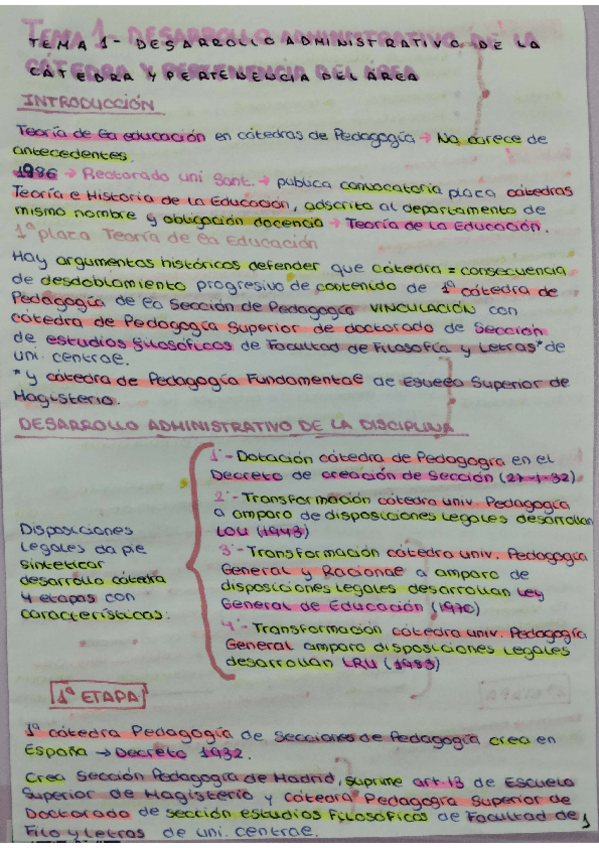 TEMA 1- DESARROLLO ADMINISTRATIVO DE LA
CÁTEDRA Y PERTENENCIA DEL ÁREA
INTRODUCCIÓN
Teoría de la educación en cátedras de Pedagogía → No carece de
antecedentes.
1986 → Rectorado Uni Sant. → publica convocatoria plaza cátedras
Teoría e Historia de la Educación, adscrita al departamento de
mismo nombre y obligación docencia → Teoría de la Educación.
1ª plaza Teoría de la Educación
Hay argumentos históricos defender que cátedra = consecuencia
de desdoblamiento progresivo de contenido de 1ª cátedra de
Pedagogía de la Sección de Pedagogía VINCULACIÓN con
cátedra de Pedagogía Superior de doctorado de Sección
de estudios filosóficos de Facultad de Filosofía y Letras* de
uni. central.
* y cátedra de Pedagogía Fundamental de Escuela Superior de
Magisterio.
DESARROLLO ADMINISTRATIVO DE LA DISCIPLINA
Disposiciones
legales da pie
sintetizar
desarrollo cátedra
4 etapas con
características:
1ª- Dotación cátedra de Pedagogía en el
Decreto de creación de Sección (27-1-32)
2ª- Transformación cátedra univ. Pedagogía
a amparo de disposiciones legales desarrollan
LOU (1943)
3ª- Transformación cátedra univ. Pedagogía
General y Racional a amparo de
disposiciones legales desarrollan Ley
General de Educación (1970)
4ª- Transformación cátedra univ. Pedagogía
General amparo disposiciones legales
desarrollan LRU (1983)
1ª ETAPA
1ª cátedra Pedagogía de Secciones de Pedagogía crea en
España → Decreto 1932.
Crea Sección Pedagogía de Madrid, suprime art.13 de Escuela
Superior de Magisterio y cátedra Pedagogía Superior de
Doctorado de sección estudios Filosóficos de Facultad de
Filo y Letras de uni. central.
1